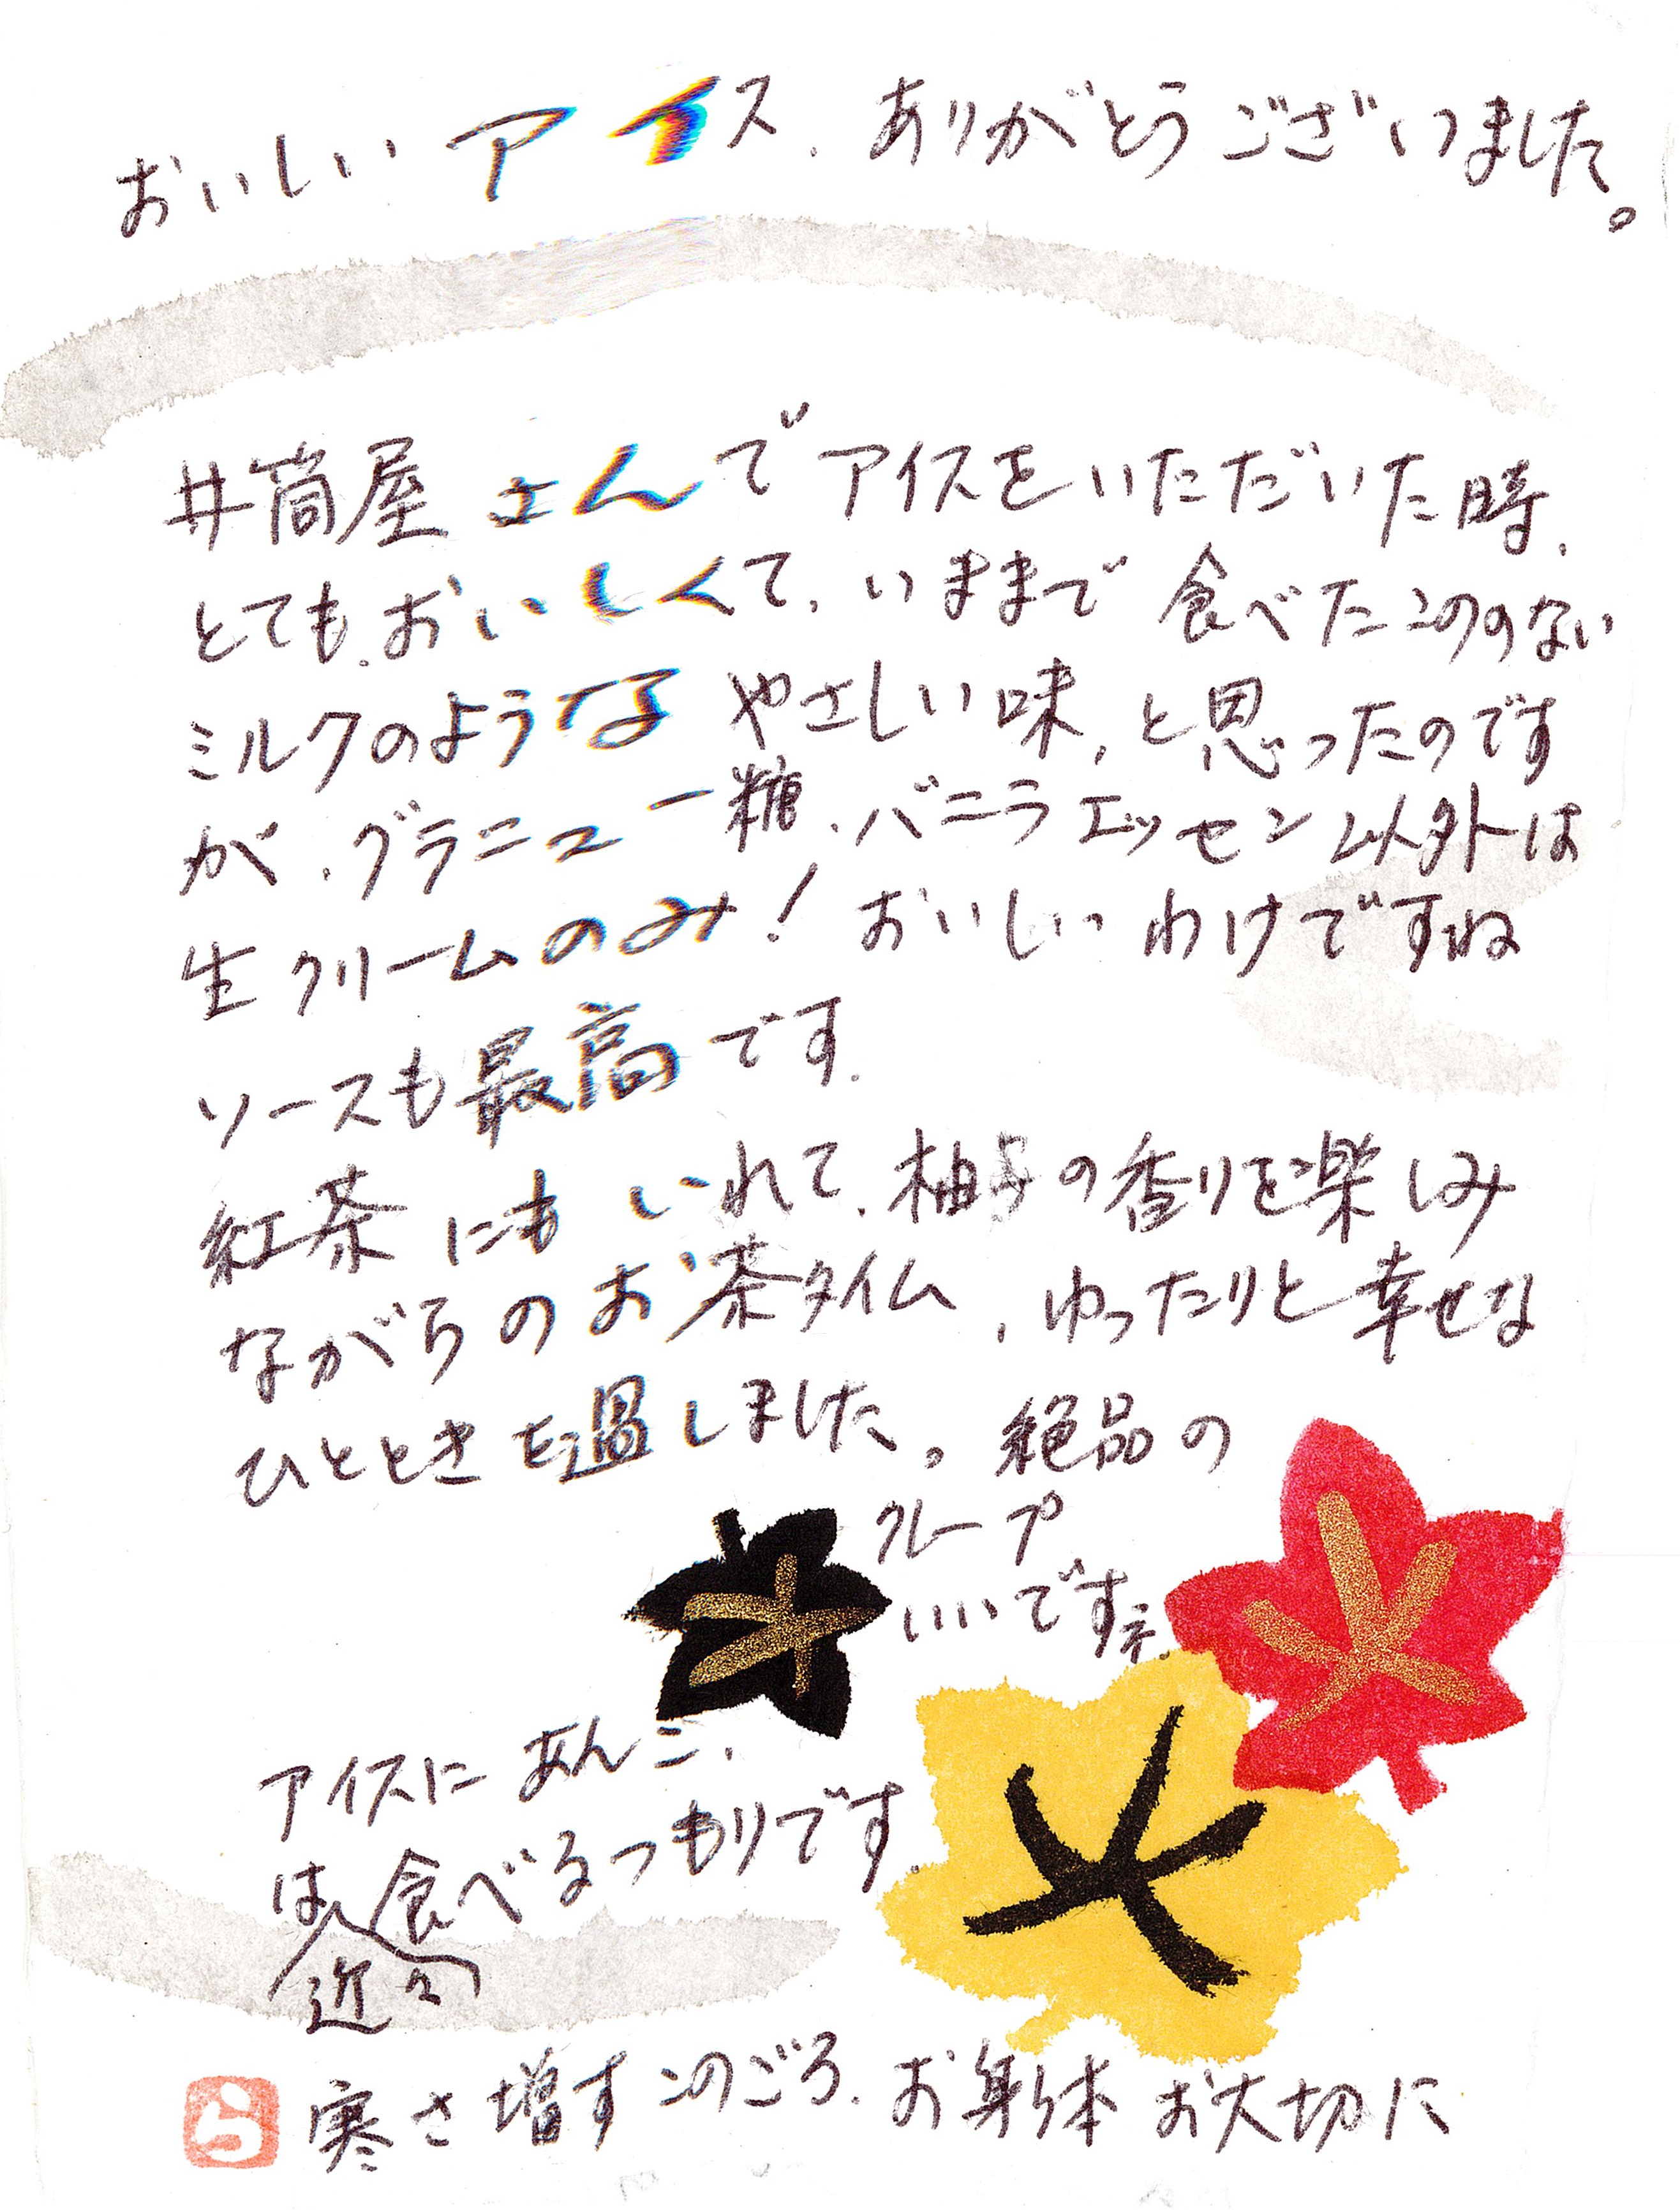 おいしいアイス、ありがとうございました。
井筒屋さんでアイスをいただいた時、
とても、おいしくて、いままで食べたこののない
ミルクのようなやさしい味、と思ったのです
が、グラニュー糖、バニラエッセン以外は
生クリームのみ！おいしいわけですね
ソースも最高です。
紅茶にもいれて、柚子の香りを楽しみ
ながらのお茶タイム、ゆったりと幸せな
ひとときを過しました。絶品の
クレープ
いいですネ。
アイスにあんこ、
は食べるつもりです。
近々
寒さ増すこのごろ、お身体お大切に
ら